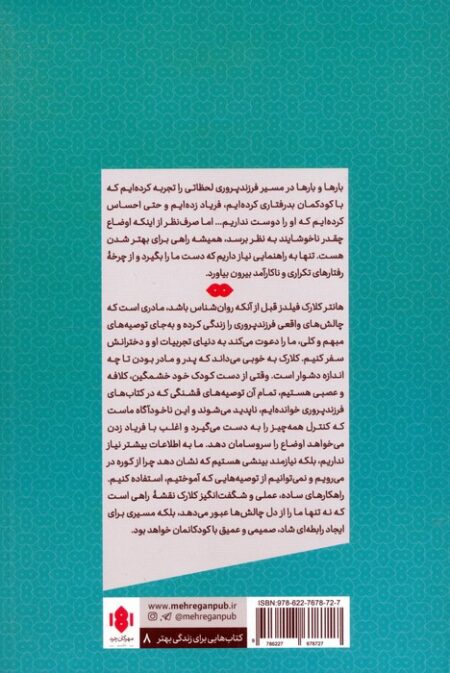 بارها و بارها در مسیر فرزندپروری لحظاتی را تجربه کرده‌ایم که
با کودکمان بدرفتاری کرده‌ایم، فریاد زده‌ایم و حتی احساس
کرده‌ایم که او را دوست نداریم... اما صرف‌نظر از اینکه اوضاع
چقدر ناخوشایند به نظر برسد، همیشه راهی برای بهتر شدن
هست. تنها به راهنمایی نیاز داریم که دست ما را بگیرد و از چرخهٔ
رفتارهای تکراری و ناکارآمد بیرون بیاورد.
هانتر کلارک فیلدز قبل از آنکه روان‌شناس باشد، مادری است که
چالش‌های واقعی فرزندپروری را زندگی کرده و به‌جای توصیه‌های
مبهم و کلی، ما را دعوت می‌کند به دنیای تجربیات او و دخترانش
سفر کنیم. کلارک به خوبی می‌داند که پدر و مادر بودن تا چه
اندازه دشوار است. وقتی از دست کودک خود خشمگین، کلافه
و عصبی هستیم، تمام آن توصیه‌های قشنگی که در کتاب‌های
فرزندپروری خوانده‌ایم، ناپدید می‌شوند و این ناخودآگاه ماست
که کنترل همه‌چیز را به دست می‌گیرد و اغلب با فریاد زدن
می‌خواهد اوضاع را سروسامان دهد. ما به اطلاعات بیشتر نیاز
نداریم، بلکه نیازمند بینشی هستیم که نشان دهد چرا از کوره در
می‌رویم و نمی‌توانیم از توصیه‌هایی که آموختیم، استفاده کنیم.
راهکارهای ساده، عملی و شگفت‌انگیز کلارک نقشهٔ راهی است
که نه تنها ما را از دل چالش‌ها عبور می‌دهد، بلکه مسیری برای
ایجاد رابطه‌ای شاد، صمیمی و عمیق با کودکانمان خواهد بود.
ISBN: 978-622-7678-72-7
9 786227 678727
www.mehreganpub.ir
@mehreganpub
کتاب‌هایی برای زندگی بهتر ۸
مهرگان خرد